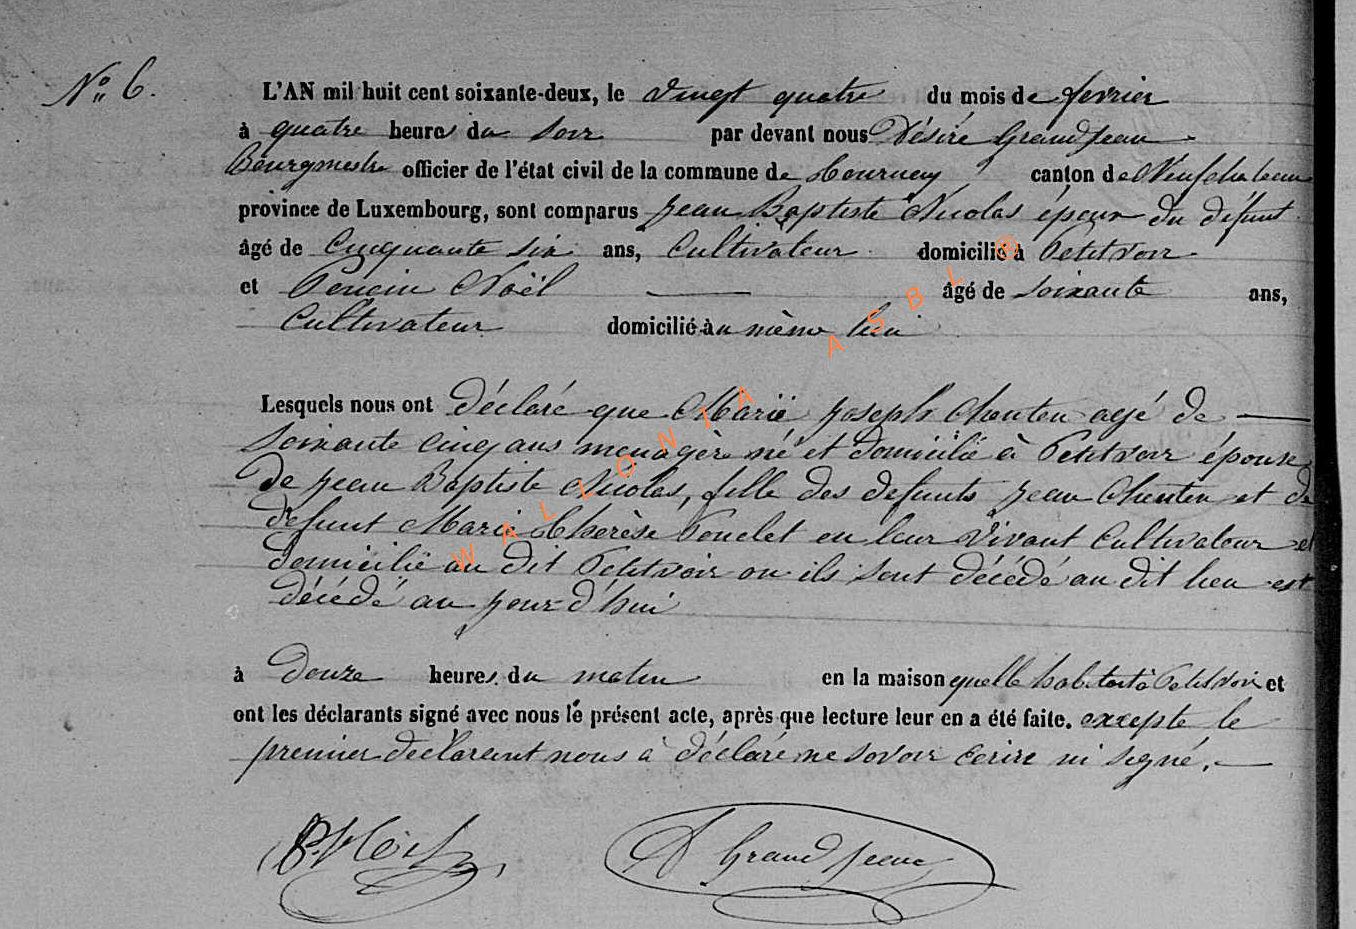 N° 6.
L'AN mil huit cent soixante-deux, le vingt quatre du mois de fevrier
à quatre heures du soir par devant nous Désiré Grandjean
Bourgmestre officier de l'état civil de la commune de Tournay canton de Neufchateau
province de Luxembourg, sont comparus Jean Baptiste Nicolas époux du défunt
âgé de Cinquante six ans, Cultivateur domicilié à Petitvoir
et Noël âgé de soixante ans,
Cultivateur domicilié au même lieu
Lesquels nous ont déclaré que Marie joseph agé de
soixante cinq ans menagère né et domicilié à Petitvoir épouse
de jean Baptiste Nicolas, fille des defunts jean et de
défunt Marie Thérèse en leur vivant Cultivateur et
domicilié au dit Petitvoir ou ils sont décédé au dit lieu est
décédé au jour d'hui
à douze heures du matin en la maison quelle habitait à Petitvoir et
ont les déclarants signé avec nous le présent acte, après que lecture leur en a été faite. excepte le
premier declarant nous à déclaré ne savoir ecrire ni signé.
P. Noël
D Grandjean
WALLONIA ASBL ®